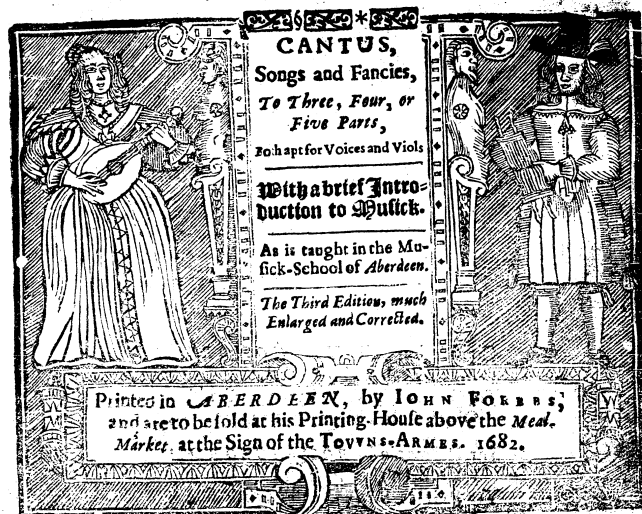 CANTUS,
Songs and Fancies,
To Three, Four, or
Five Parts,
Both apt for Voices and Viols
With a brief Intro-
duction to Musick.
As is taught in the Mu-
sick-School of Aberdeen.
The Third Edition, much
Enlarged and Corrected.
Printed in ABERDEEN, by IOHN FORBES,
and are to be sold at his Printing-House above the Meal-
Market, at the Sign of the TOVVNS-ARMES. 1682.